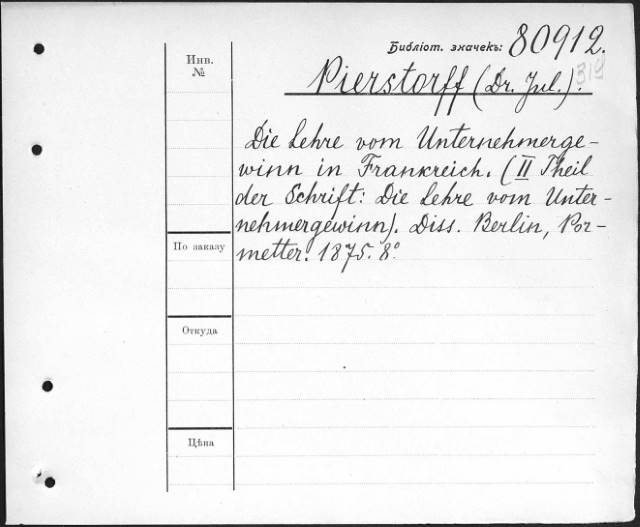 Библіот. значекъ: 80912.
319
Инв. №
Pierstorff (Dr. Jul.).
Die Lehre vom Unternehmerge-
winn in Frankreich. (II Theil
der Schrift: Die Lehre vom Unter-
nehmergewinn). Diss. Berlin, Por-
metter. 1875. 8°
По заказу
Откуда
Цѣна